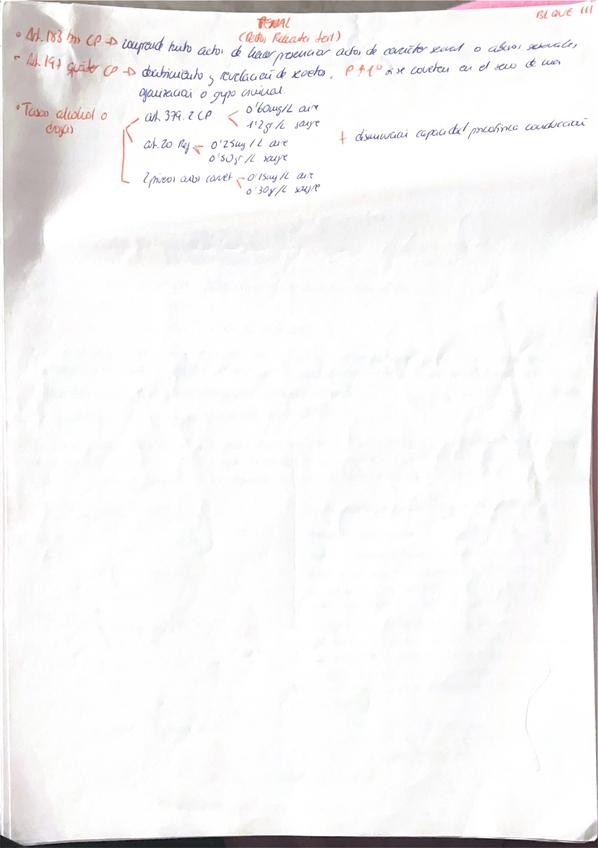 PENAL
BLOQUE III
(Datos Relevantes test)
• Art. 183 bis CP → comprende tanto actos de hacer presenciar actos de carácter sexual o abusos sexuales
- Art. 197 quáter CP → descubrimiento y revelación de secretos, P↑1º si se cometen en el seno de una
organización o grupo criminal.
• Tasas alcohol o
drogas
art. 379.2 CP < 0'60mg/L aire
1'2gr/L sangre
+ disminución capacidad psicofísica conducción
art. 20 Reg < 0'25mg/L aire
0'50gr/L sangre
2 primeros años carnet < 0'15mg/L aire
0'30gr/L sangre